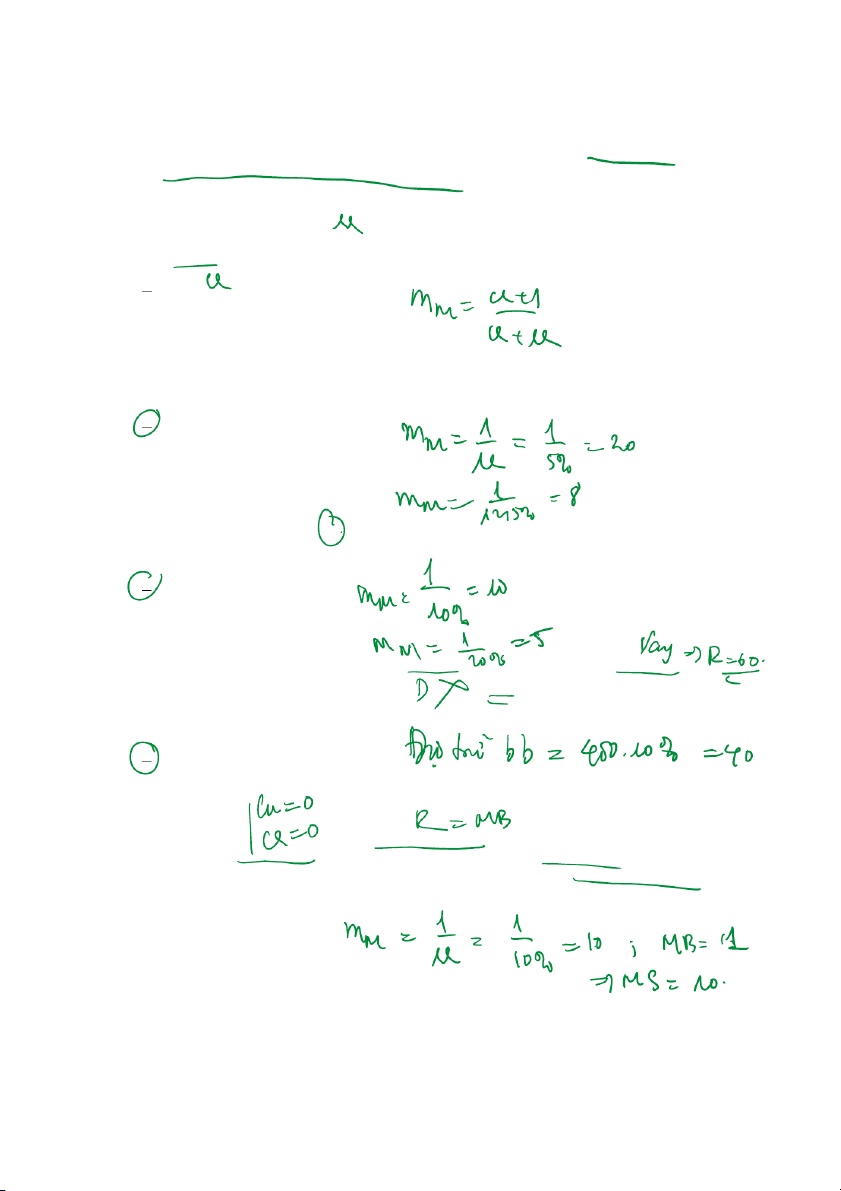 u
u
m_M = u+1 / u+u
m_M = 1/u = 1/5% = 20
m_M = 1/12,5% = 8
m_M = 1/10% = 10
m_M = 1/20% = 5
Vay ⇒ R = 60.
D =
Dự trữ bb = 400.10% = 40
Cu = 0
R = MB
Cr = 0
m_M = 1/u = 1/10% = 10 ; MB = 1
⇒ MS = 10.